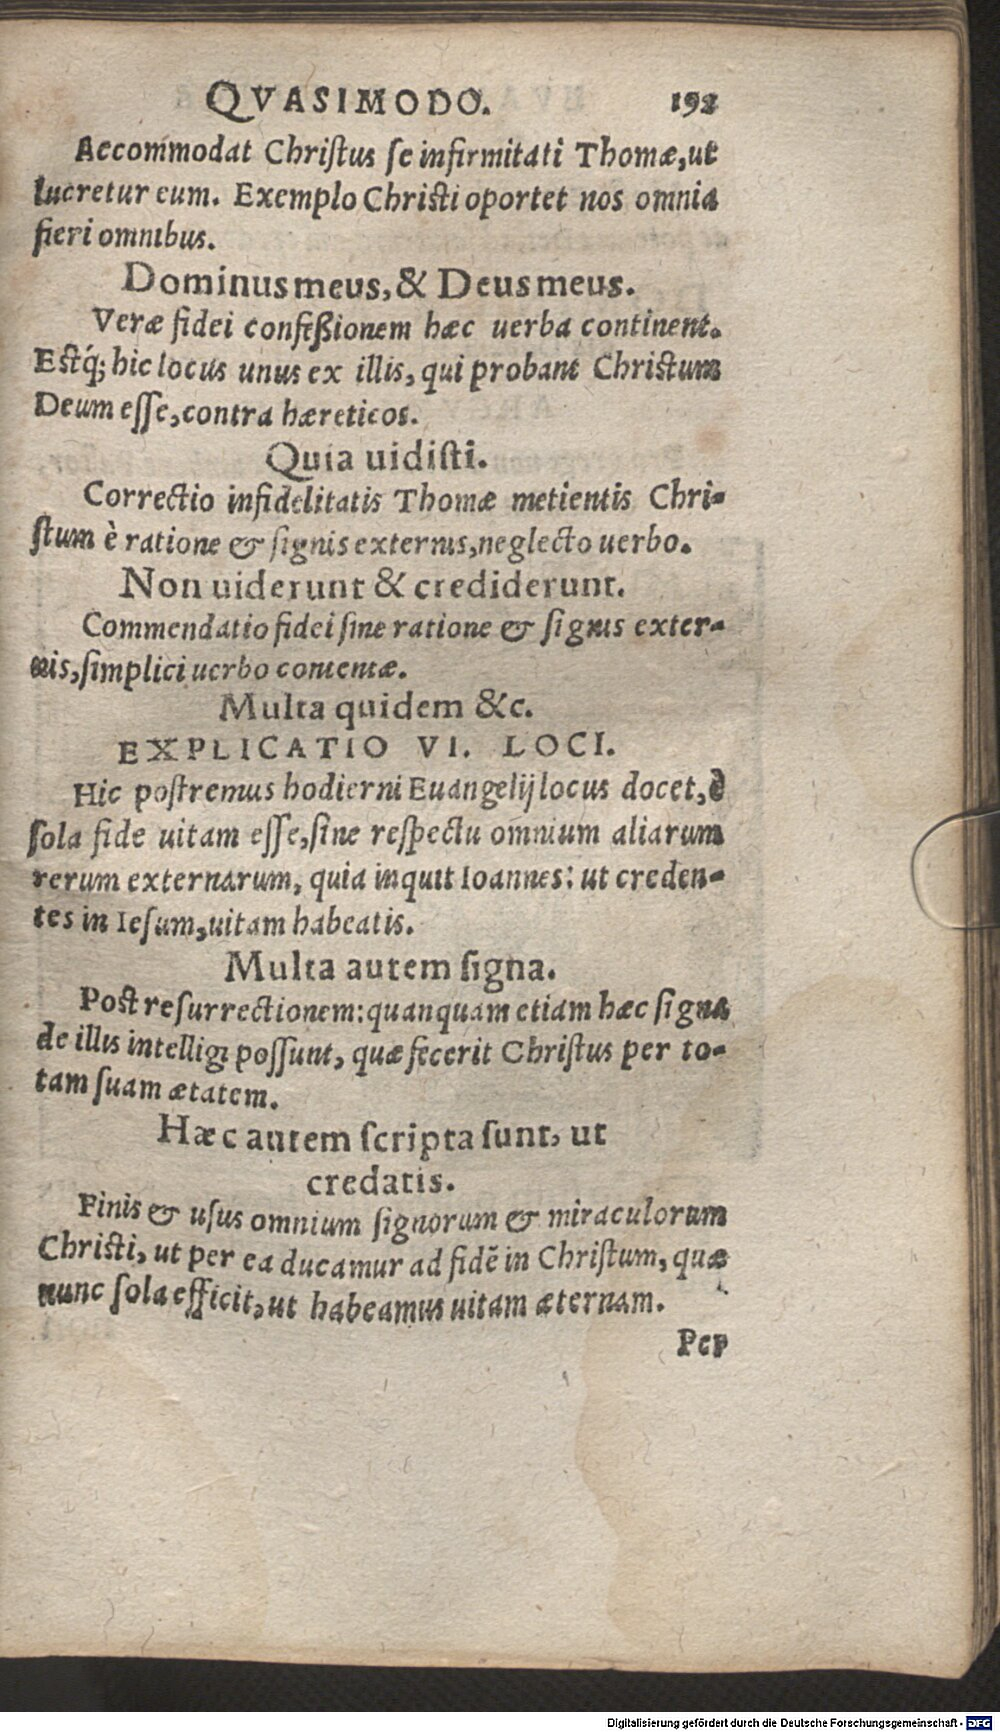 QVASIMODO. 192
Accommodat Chriſtus ſe infirmitati Thomæ, ut
lucretur eum. Exemplo Chriſti oportet nos omnia
fieri omnibus.
Dominus meus, & Deus meus.
Veræ fidei confeßionem hæc uerba continent.
Eſtq́; hic locus unus ex illis, qui probant Chriſtum
Deum eſſe, contra hæreticos.
Quia uidiſti.
Correctio infidelitatis Thomæ metientis Chri-
ſtum è ratione & ſignis externis, neglecto uerbo.
Non uiderunt & crediderunt.
Commendatio fidei ſine ratione & ſignis exter-
nis, ſimplici uerbo contentæ.
Multa quidem &c.
EXPLICATIO VI. LOCI.
Hic poſtremus hodierni Euangelij locus docet, è
ſola fide uitam eſſe, ſine reſpectu omnium aliarum
rerum externarum, quia inquit Ioannes: ut creden-
tes in Ieſum, uitam habeatis.
Multa autem ſigna.
Poſt reſurrectionem: quanquam etiam hæc ſigna
de illis intelligi poſſunt, quæ fecerit Chriſtus per to-
tam ſuam ætatem.
Hæc autem ſcripta ſunt, ut
credatis.
Finis & uſus omnium ſignorum & miraculorum
Chriſti, ut per ea ducamur ad fidẽ in Chriſtum, quæ
nunc ſola efficit, ut habeamus uitam æternam.
Per
Digitalisierung gefördert durch die Deutsche Forschungsgemeinschaft - DFG